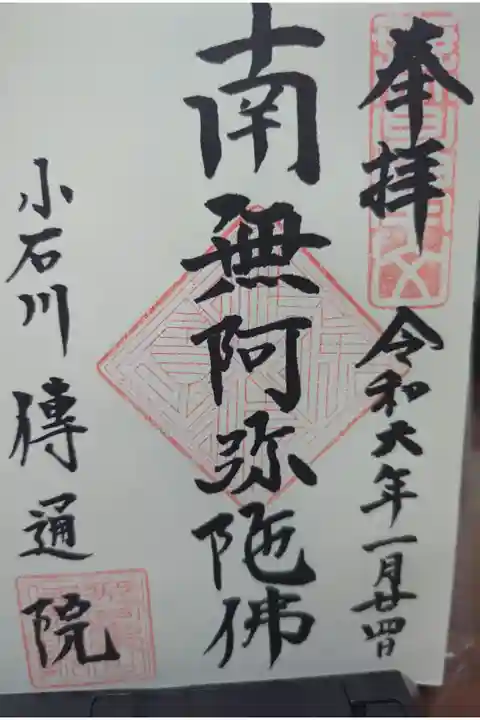 奉拝
令和六年一月廿四日
南無阿弥陀佛
小石川傳通院